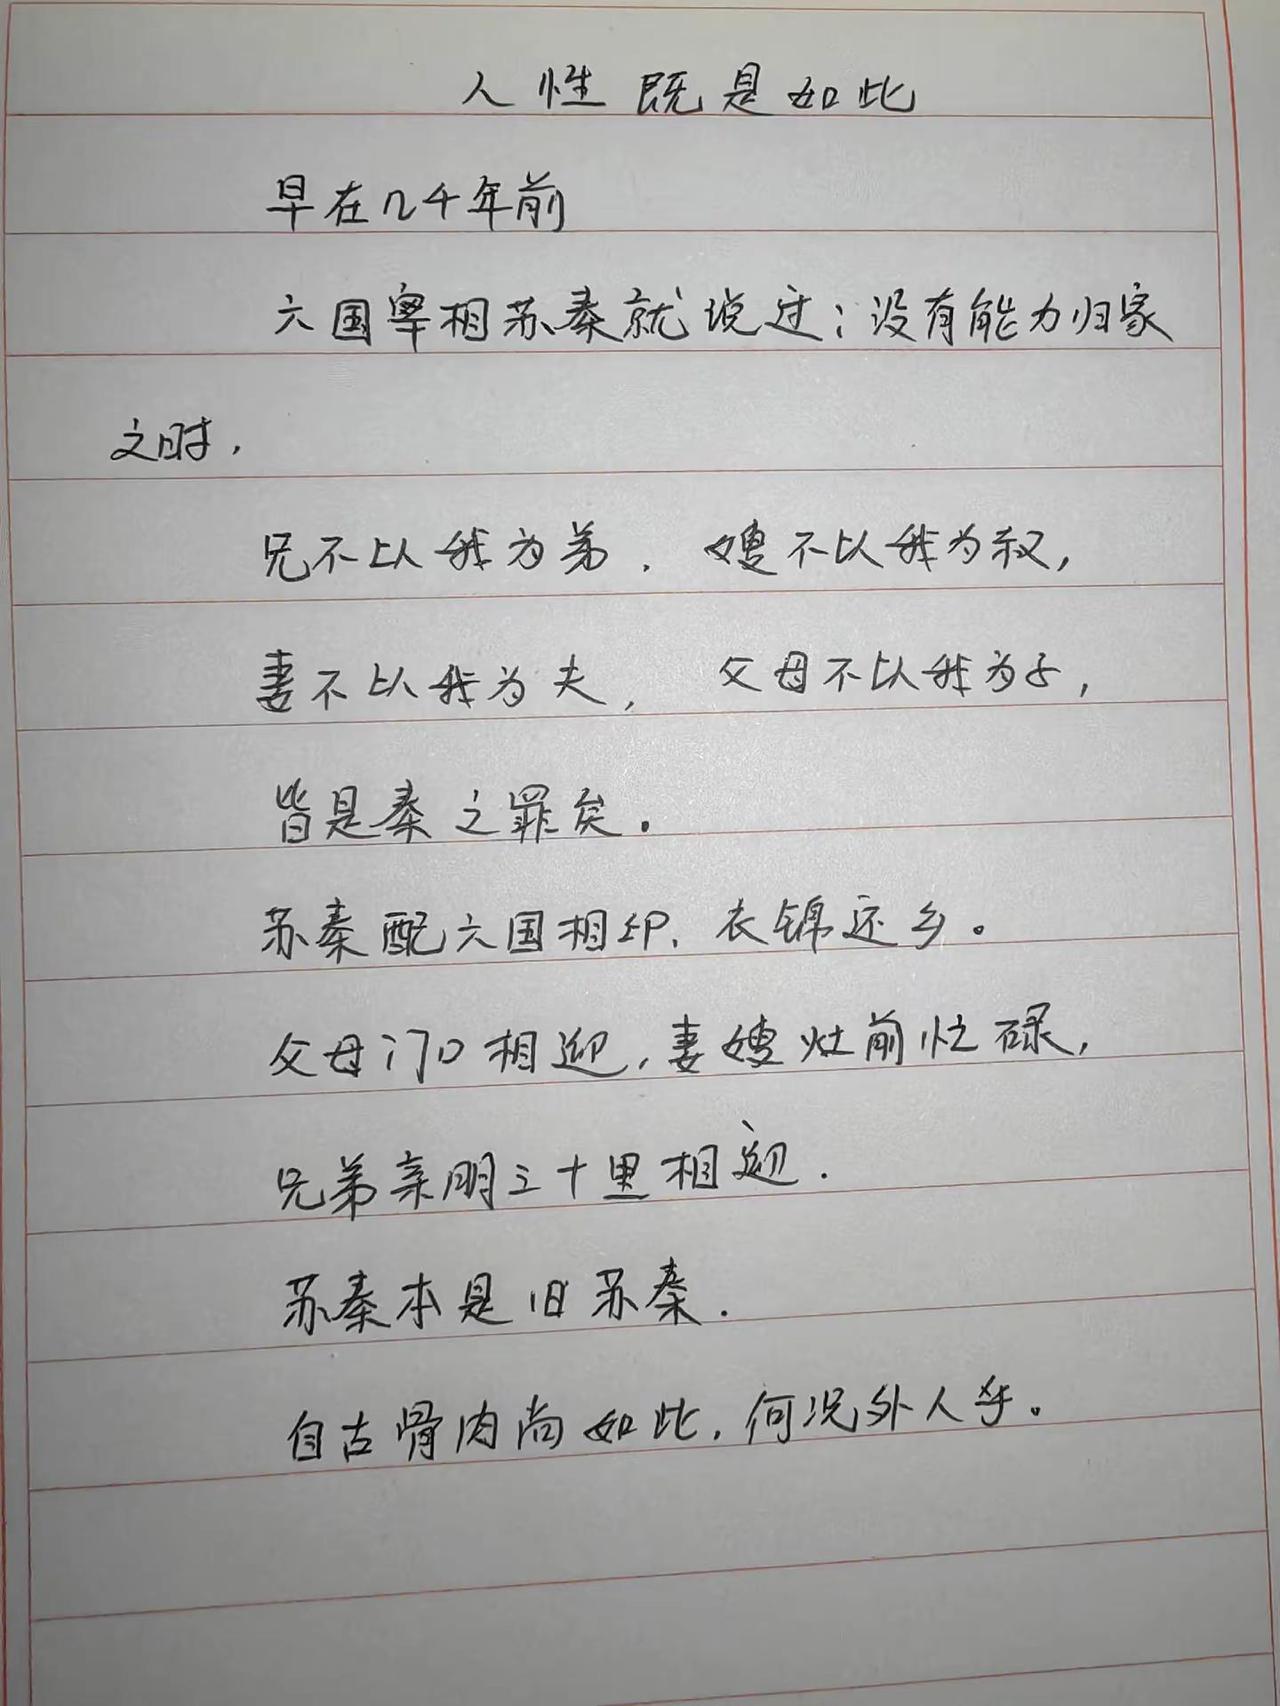 人性既是如此
早在几千年前
六国宰相苏秦就说过：没有能力归家
之时，
兄不以我为弟．嫂不以我为叔，
妻不以我为夫，父母不以我为子，
皆是秦之罪矣．
苏秦配六国相印、衣锦还乡。
父母门口相迎，妻嫂灶前忙碌，
兄弟亲朋三十里相迎．
苏秦本是旧苏秦．
自古骨肉尚如此，何况外人乎。